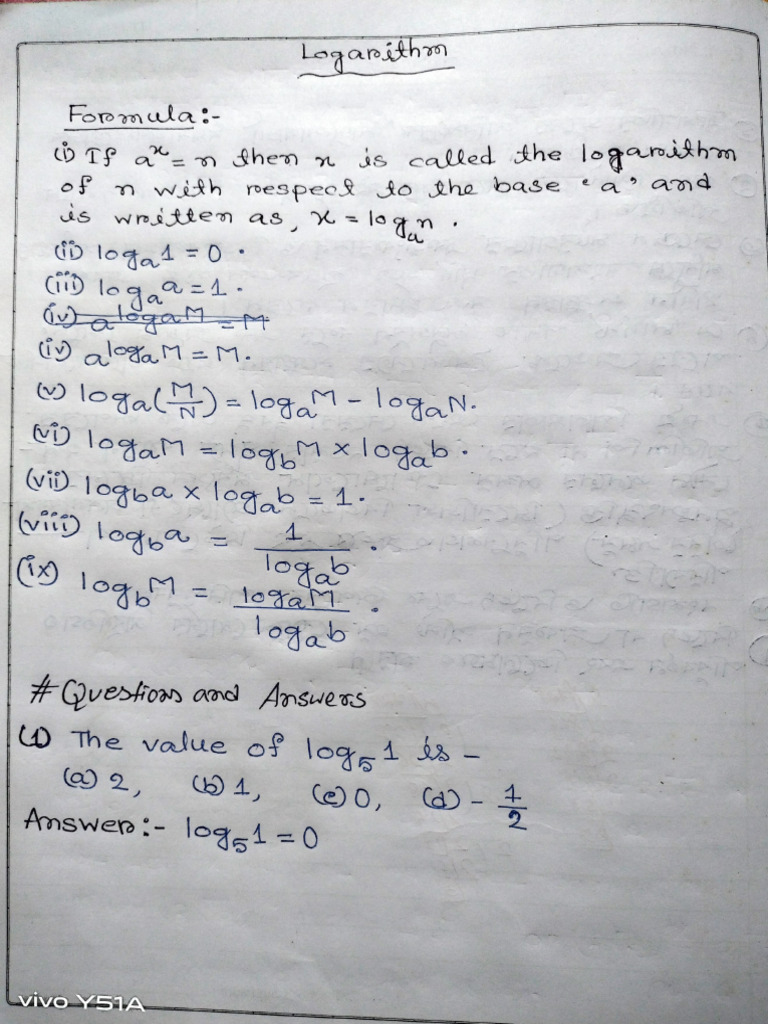 Logarithm
Formula:-
(i) If aˣ = n then x is called the logarithm
of n with respect to the base 'a' and
is written as, x = logₐn.
(ii) logₐ1 = 0.
(iii) logₐa = 1.
(iv) a^logₐM = M
(iv) a^logₐM = M.
(v) logₐ(M/N) = logₐM - logₐN.
(vi) logₐM = log_bM × logₐb.
(vii) log_ba × logₐb = 1.
(viii) log_ba = 1/logₐb.
(ix) log_bM = logₐM/logₐb.
# Questions and Answers
(1) The value of log₅1 is -
(a) 2, (b) 1, (c) 0, (d) - 1/2
Answer:- log₅1 = 0
vivo Y51A